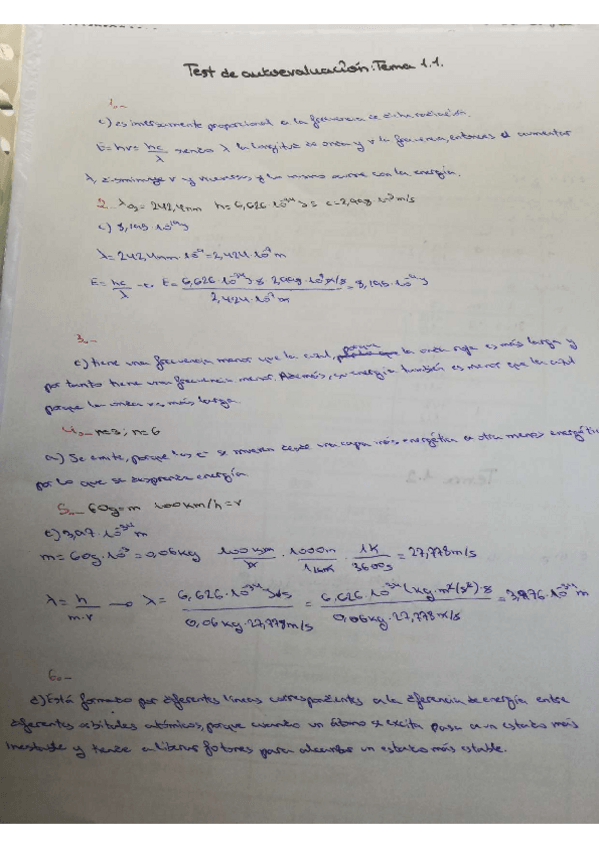 Test de autoevaluación: Tema 1.1.
1.-
c) es inversamente proporcional a la frecuencia de dicha radiación.
E=hν= hc/λ siendo λ la longitud de onda y ν la frecuencia, entonces al aumentar
λ disminuye ν y viceversa y lo mismo ocurre con la energía.
2. = 242,4nm h=6,626·10⁻³⁴ J·s c=2,998·10⁸ m/s
c) 8,195·10⁻¹⁹ J
λ=242,4nm·10⁻⁹=2,424·10⁻⁷ m
E= hc/λ → E= 6,626·10⁻³⁴ J·s · 2,998·10⁸ m/s / 2,424·10⁻⁷ m = 8,195·10⁻¹⁹ J
3.-
c) tiene una frecuencia menor que la azul, porque la onda roja es más larga y
por tanto tiene una frecuencia menor. Además, su energía también es menor que la azul
porque la onda es más larga.
4.- n=3; n=6
a) Se emite, porque los e⁻ se mueven desde una capa más energética a otra menos energética
por lo que se desprende energía
5.- 60g=m 100km/h=v
c) 3,97·10⁻³⁴ m
m=60g·10⁻³=0,06kg 100km/h · 1000m/1km · 1h/3600s = 27,778m/s
λ= h/m·v → λ= 6,626·10⁻³⁴ J·s / 0,06kg·27,778m/s = 6,626·10⁻³⁴ (kg·m²/s²)·s / 0,06kg·27,778m/s = 3,976·10⁻³⁴ m
6.-
d) Está formado por diferentes líneas correspondientes a la diferencia de energía entre
diferentes orbitales atómicos, porque cuando un átomo se excita pasa a un estado más
inestable y tiende a liberar fotones para alcanzar un estado más estable.